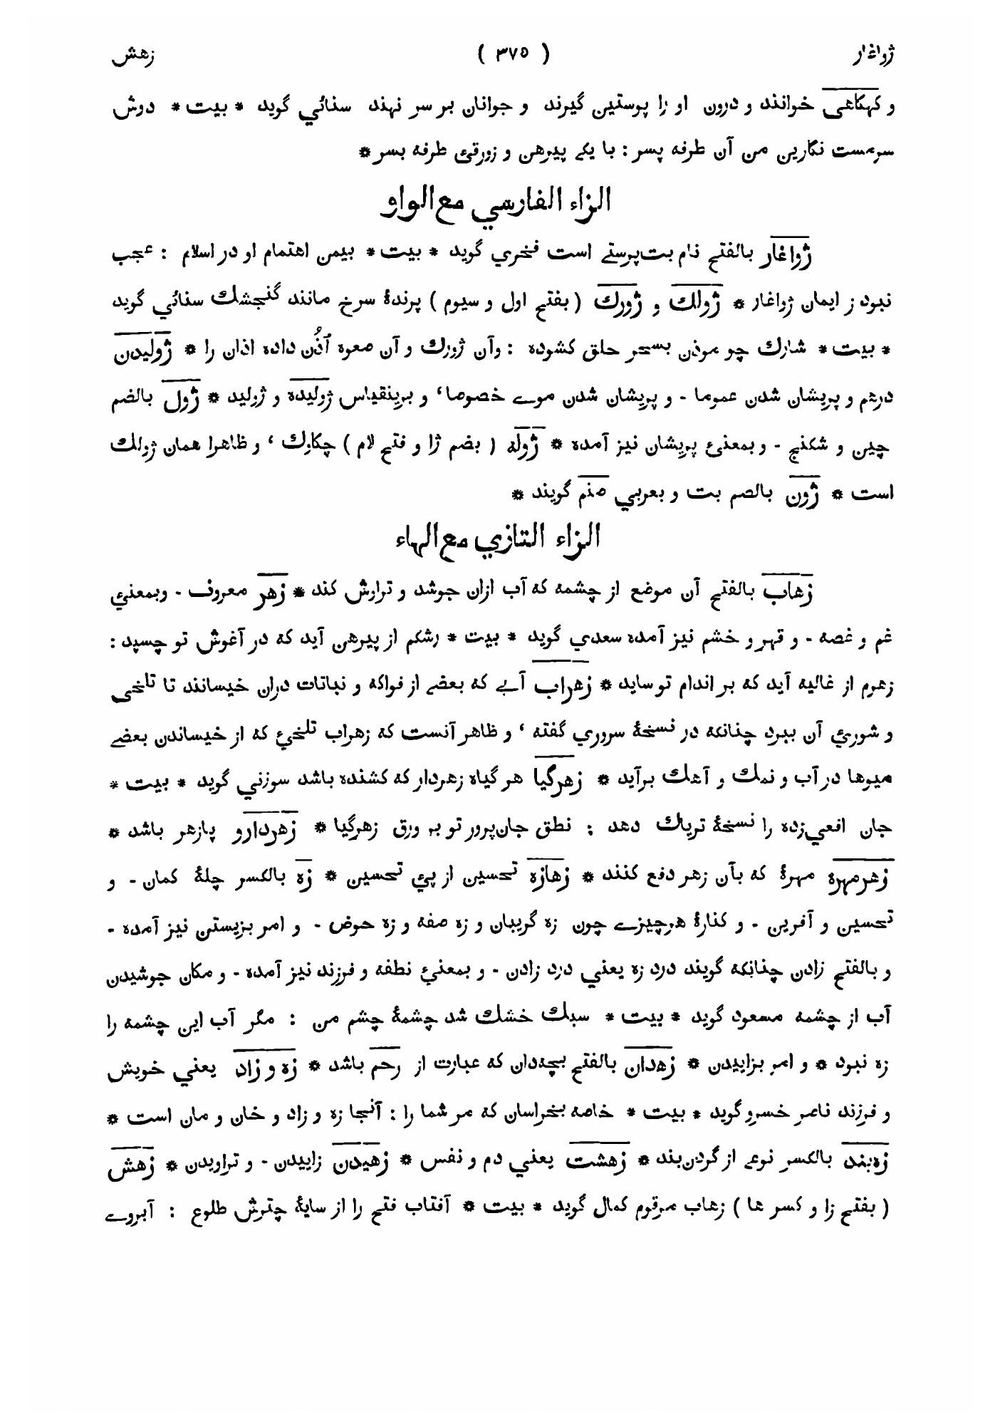 ژواغار ( ۳۷۵ ) زهش
و کهکاهی خوانند و درون او را پوستین گیرند و جوانان بر سر نهند سنائي گوید * بیت * دوش
سرمست نگارین من آن طرفه پسر : با یکے پیرهن و زورقیٔ طرفه بسر *
الزاء الفارسي مع الواو
ژواغار بالفتح نام بت‌پرستے است فخري گوید * بیت * بیمن اهتمام او در اسلام : عجب
نبود ز ایمان ژواغار * ژولك و ژورك ( بفتح اول و سیوم ) پرندهٔ سرخ مانند گنجشك سنائي گوید
* بیت * شارك چو موذن بسحر حلق کشوده : وآن ژورك و آن صعوه آذُن داده اذان را * ژولیدن
درهم و پریشان شدن عموما - و پریشان شدن موے خصوصا ، و برینقیاس ژولیده و ژولید * ژول بالضم
چین و شکنج - و بمعنیٔ پریشان نیز آمده * ژوله ( بضم ژا و فتح لام ) چکاوك ، و ظاهرا همان ژولك
است * ژون بالضم بت و بعربي صنم گویند *
الزاء التازي مع الهاء
زهاب بالفتح آن موضع از چشمه که آب ازان جوشد و ترارش کند * زهر معروف - وبمعنئ
غم و غصه - و قهر و خشم نیز آمده سعدي گوید * بیت * رشکم از پیرهن آید که در آغوش تو چسپد :
زهرم از غالیه آید که بر اندام تو ساید * زهراب آبے که بعضے از فواکه و نباتات دران خیسانند تا تلخی
و شوریٔ آن ببرد چنانکه در نسخهٔ سروري گفته ، و ظاهر آنست که زهراب تلخیٔ که از خیساندن بعضے
میوها در آب و نمك و آهك برآید * زهرگیا هر گیاه زهردار که کشنده باشد سوزني گوید * بیت *
جان افعي‌زده را نسخهٔ تریاك دهد : نطق جان‌پرور تو بر ورق زهرگیا * زهردارو پازهر باشد *
زهرمهره مهرهٔ که بآن زهر دفع کنند * زهازه تحسین از پیٔ تحسین * زه بالکسر چلهٔ کمان - و
تحسین و آفرین - و کنارهٔ هرچیزے چون زه گریبان و زه صفه و زه حوض - و امر بزیستن نیز آمده -
و بالفتح زادن چنانکه گویند درد زه یعني درد زادن - و بمعنیٔ نطفه و فرزند نیز آمده - و مکان جوشیدن
آب از چشمه مسعود گوید * بیت * سبك خشك شد چشمهٔ چشم من : مگر آب این چشمه را
زه نبود * و امر بزاییدن * زهدان بالفتح بچه‌دان که عبارت از رحم باشد * زه و زاد یعني خویش
و فرزند ناصر خسرو گوید * بیت * خاصه بخراسان که مر شما را : آنجا زه و زاد و خان و مان است *
زه‌بند بالکسر نوعے از گردن‌بند * زهشت یعني دم و نفس * زهیدن زاییدن - و تراویدن * زهش
( بفتح زا و کسر ها ) زهاب مرقوم کمال گوید * بیت * آفتاب فتح را از سایهٔ چترش طلوع : آبروے